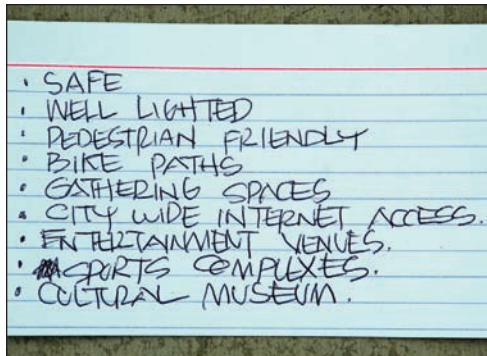 · SAFE
· WELL LIGHTED
· PEDESTRIAN FRIENDLY
· BIKE PATHS
· GATHERING SPACES
· CITY WIDE INTERNET ACCESS.
· ENTERTAINMENT VENUES.
· SPORTS COMPLEXES.
· CULTURAL MUSEUM.